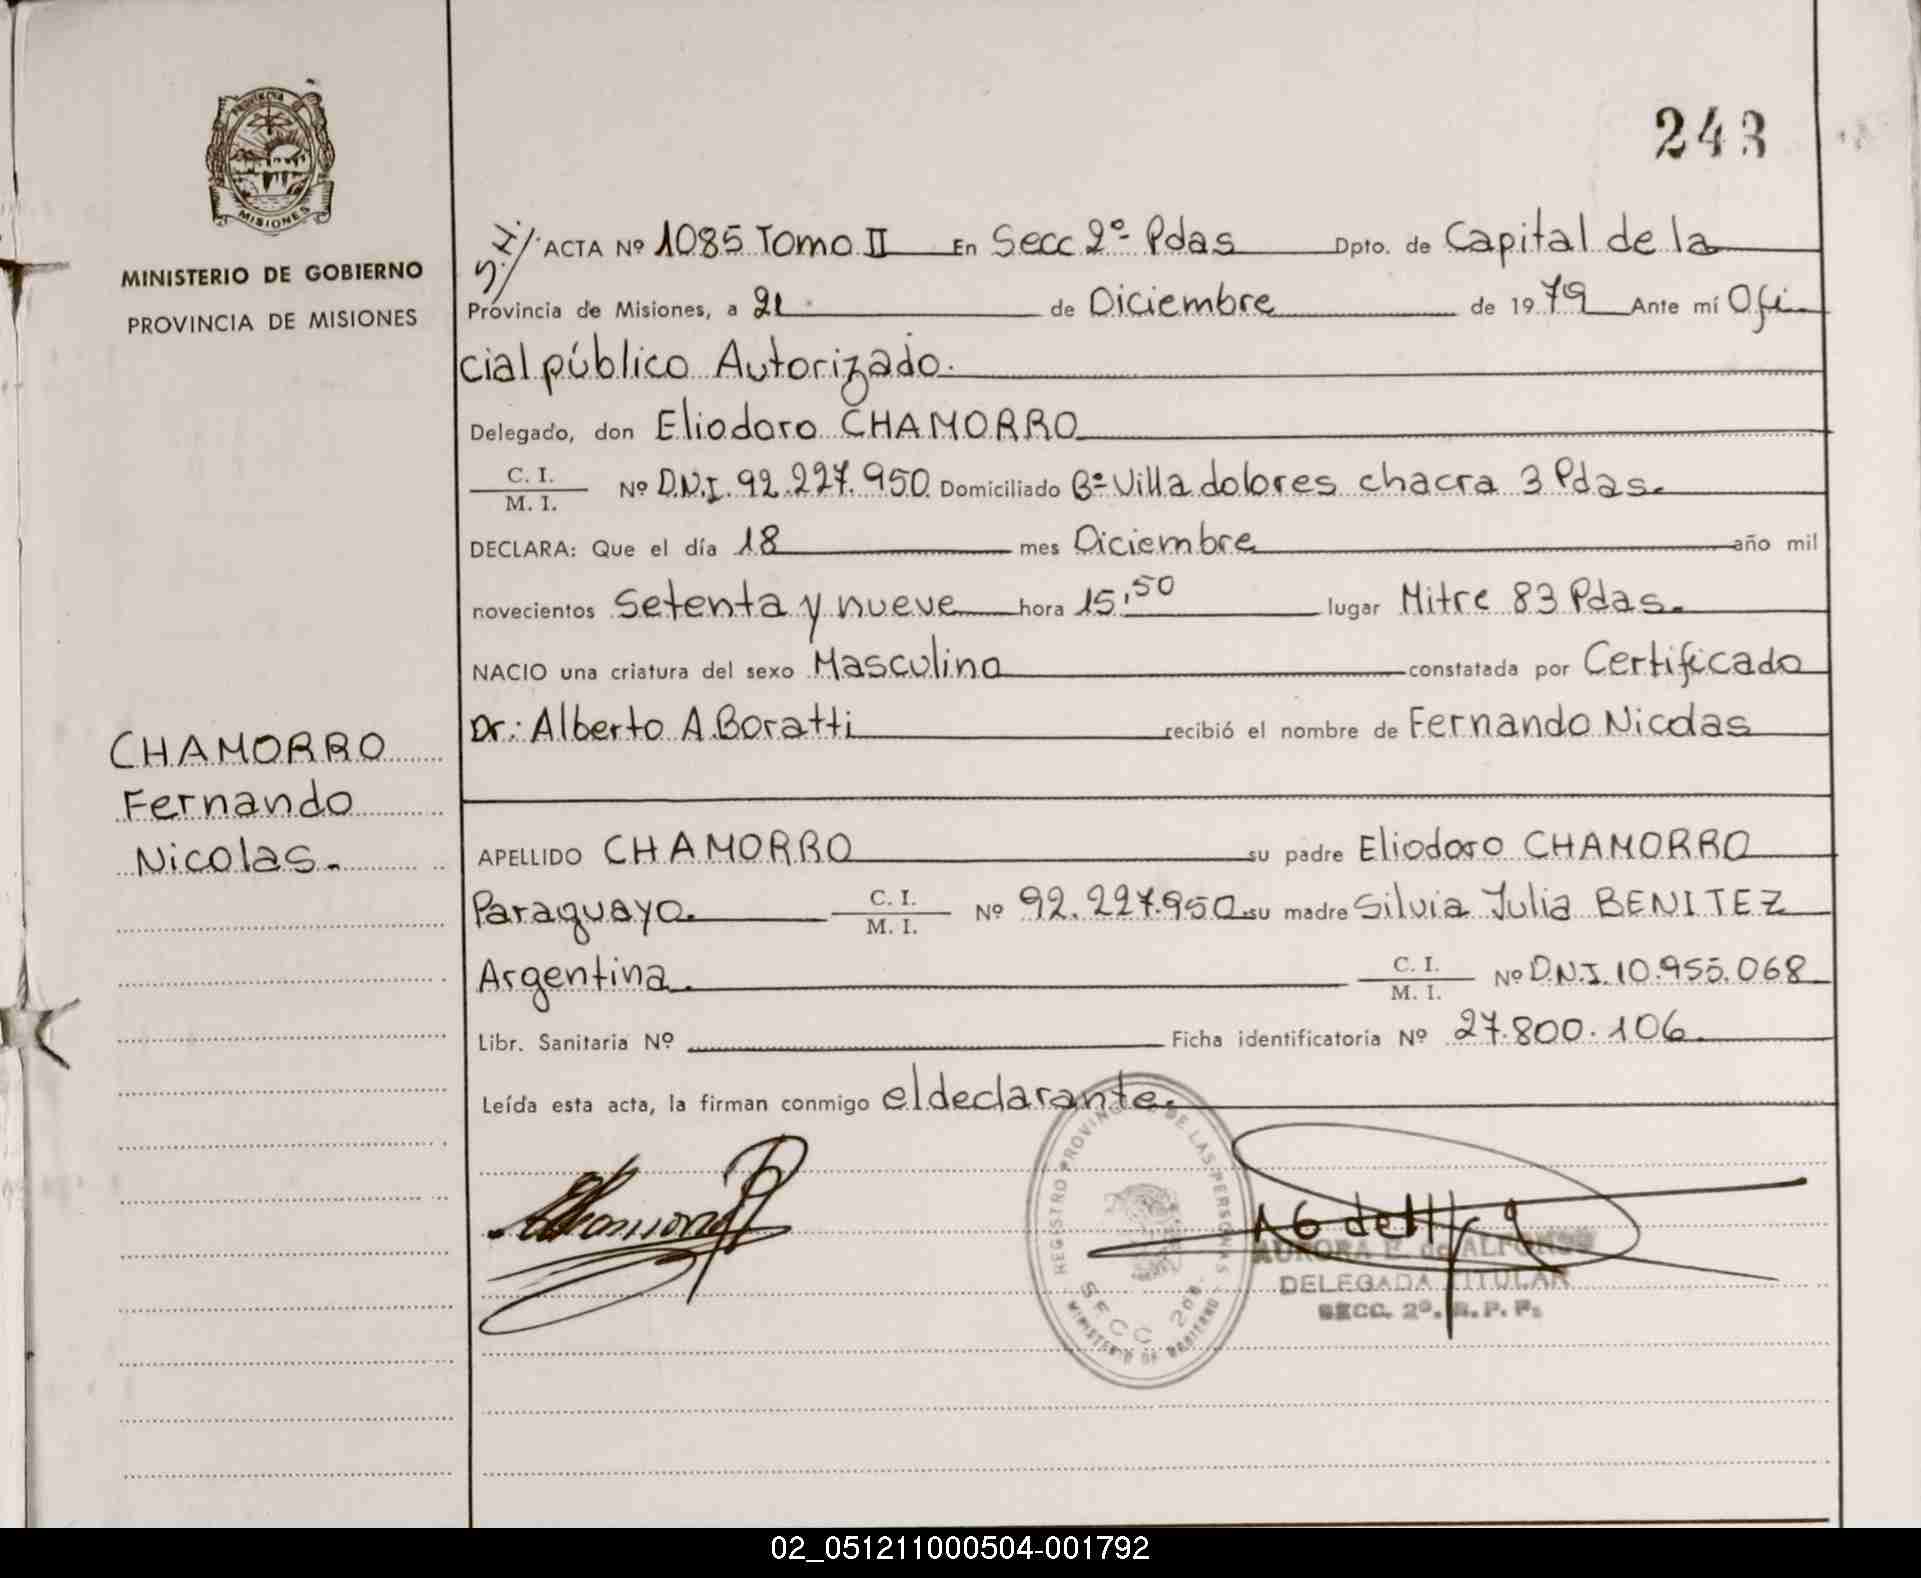 PROVINCIA DE
MISIONES
MINISTERIO DE GOBIERNO
PROVINCIA DE MISIONES
243
S.I/. ACTA Nº 1085 Tomo II En Secc 2º Pdas Dpto. de Capital de la
Provincia de Misiones, a 21 de Diciembre de 1979 Ante mí Ofi
cial público Autorizado.
Delegado, don Eliodoro CHAMORRO
C. I.
M. I. Nº D.N.I. 92.227.950 Domiciliado Bº Villa dolores chacra 3 Pdas.
DECLARA: Que el día 18 mes Diciembre año mil
novecientos Setenta y nueve hora 15,50 lugar Mitre 83 Pdas.
NACIO una criatura del sexo Masculino constatada por Certificado
Dr.: Alberto A. Boratti recibió el nombre de Fernando Nicolas
CHAMORRO
Fernando
Nicolas.
APELLIDO CHAMORRO su padre Eliodoro CHAMORRO
Paraguayo. C. I.
M. I. Nº 92.227.950 su madre Silvia Julia BENITEZ
Argentina. C. I.
M. I. Nº D.N.I. 10.955.068
Libr. Sanitaria Nº Ficha identificatoria Nº 27.800.106
Leída esta acta, la firman conmigo el declarante.
REGISTRO PROVINCIAL DE LAS PERSONAS
SECC 2da.
MINISTERIO DE
AURORA E. de ALFONSO
DELEGADA TITULAR
SECC. 2º. R. P. P.
02_051211000504-001792